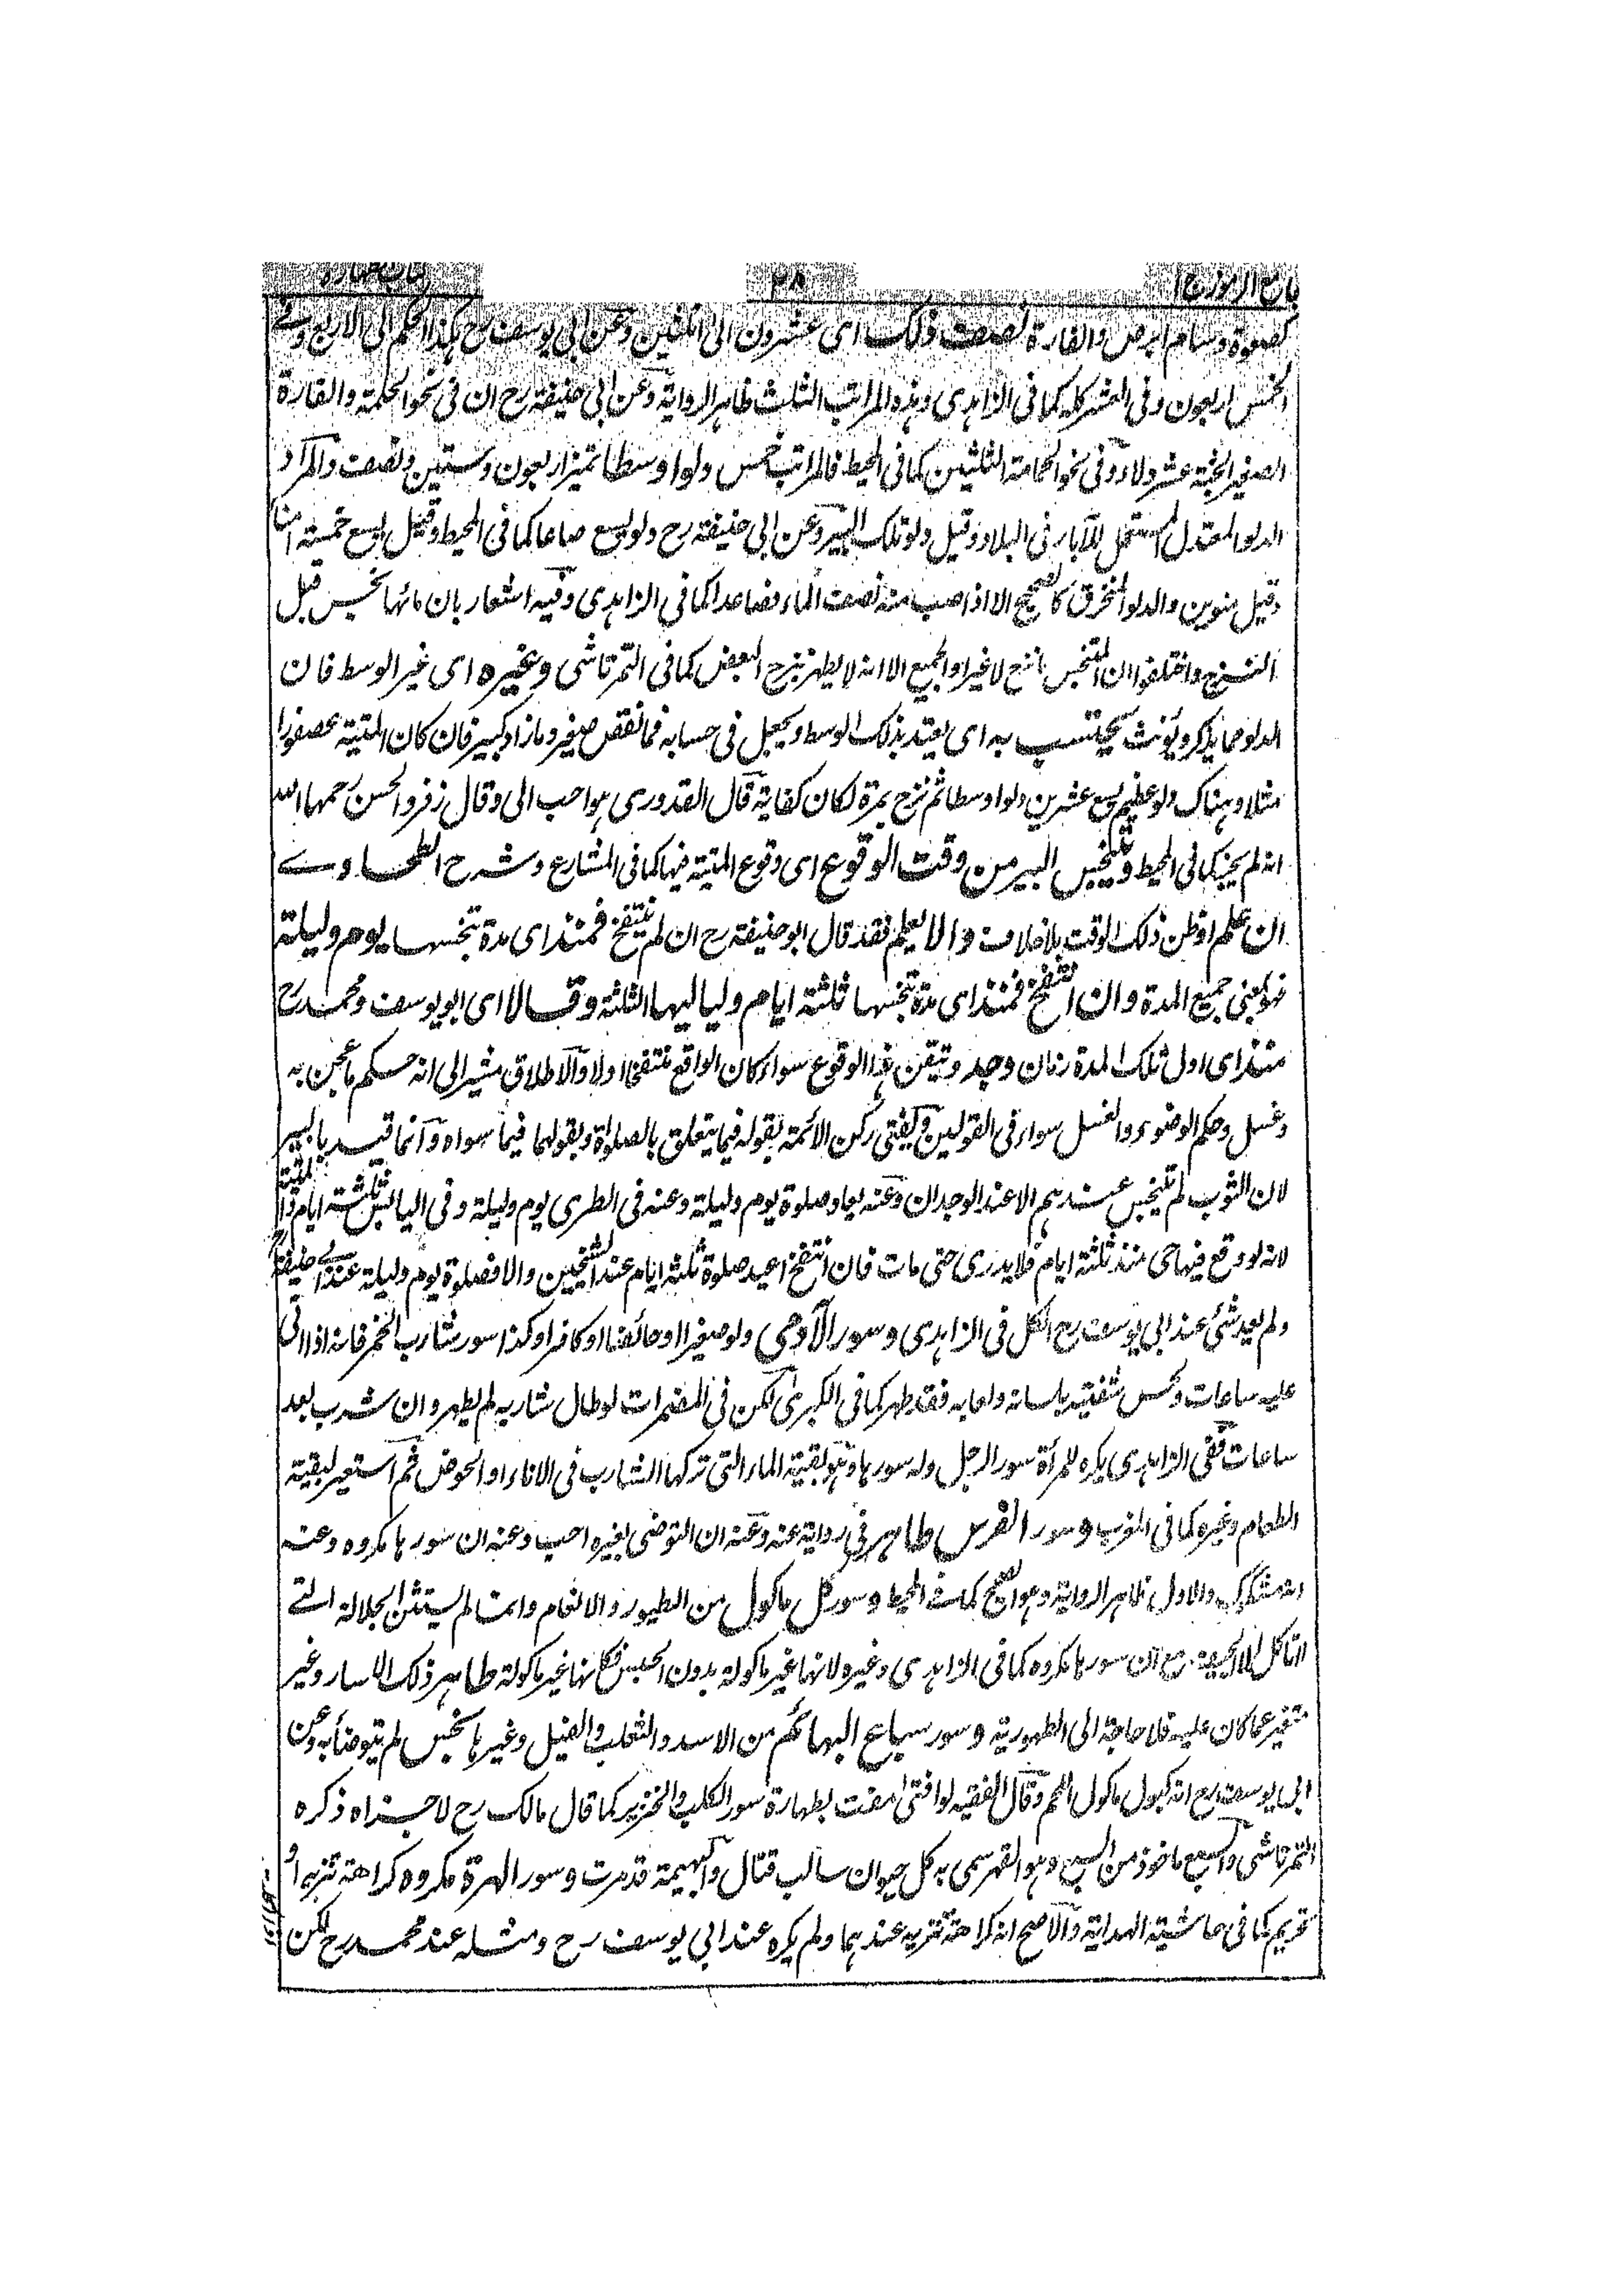 جامع الرموز ج ا ٢٨ كتاب الطهارة
كصعوة وسام ابرص والفارة نصف ذلك اى عشرون الى الثلثين وعن ابى يوسف رح هكذا الحكم الى الاربع وفى
الخمس اربعون وفى العشر كله كما فى الزاهدى وهذه المراتب الثلث ظاهر الرواية وعن ابى حنيفة رح ان فى نحو الحلمة والفارة
الصغيرة الجثة عشر دلاء وفى نحو الحمامة الثلثين كما فى المحيط فالمراتب خمس دلوا وسطا تميز اربعون وستين ونصف والمراد
الدلو المعتدل المستعمل للآبار فى البلاد وقيل دلو تلك البير وعن ابى حنيفة رح دلو يسع صاعا كما فى المحيط وقيل يسع خمسة امنا
وقيل منوين والدلو المنخرق كالصحيح الا اذا صب منه نصف الماء فصاعدا كما فى الزاهدى وفيه اشعار بان مائها نجس قبل
النزح واختلفوا ان المتنجس ما نزح لا غير او الجميع الا انه لا يطهر بنزح البعض كما فى التمرتاشى وغيره اى غير الوسط فان
الدلو مما يذكر ويؤنث يحتسب به اى يعتد بذلك الوسط ويجعل فى حسابه فما نقص صغير وما زاد كبير فان كان الميتة عصفورا
مثلا وهناك دلو عظيم يسع عشرين دلوا وسطا ثم نزح بمرة لكان كفاية قال القدورى هو احب الى وقال زفر والحسن رحمهما الله
انه لم يجز كما فى المحيط ويتنجس البير من وقت الوقوع اى وقوع الميتة فيها كما فى المشارع وشرح الطحاوے
ان علم او ظن ذلك الوقت بلا خلاف والا يعلم فقد قال ابو حنيفة رح ان لم ينتفخ فمنذ اى مدة تنجسها يوم وليلة
فهو بمعنى جميع المدة وان انتفخ فمنذ اى مدة تنجسها ثلثة ايام ولياليها الثلثة وقالا اى ابو يوسف ومحمد رح
منذ اى اول تلك المدة زمان وجد وتيقن هذا الوقوع سواء كان الواقع منتفخا اولا والاطلاق مشير الى انه حكم ما عجن به
وغسل وحكم الوضوء والغسل سواء فى القولين ويفتى ركن الائمة بقوله فيما يتعلق بالصلوة وبقولهما فيما سواه وانما قيد بالبير
لان الثوب لم يتنجس عندهم الا عند الوجدان وعنه يعاد صلوة يوم وليلة وعنه فى الطرى يوم وليلة وفى اليابس ثلثة ايام والميتة
لانه لو وقع فيها حى منذ ثلثة ايام فلا يدرى حتى مات فان انتفخ اعيد صلوة ثلثة ايام عند الشيخين والا فصلوة يوم وليلة عند ابى حنيفة رح
ولم يعد شئ عند ابى يوسف رح الكل فى الزاهدى وسور الآدمى ولو صغيرا او حائضا او كافرا وكذا سور شارب الخمر فانه اذا اتى
عليه ساعات ولحس شفتيه بلسانه ولعابه فقد طهر كما فى الكبرى لكن فى المضمرات لو طال شاربه لم يطهر وان شرب بعد
ساعات ففى الزاهدى يكره للمرأة سور الرجل وله سورها وهو بقية الماء التى تركها الشارب فى الاناء او الحوض ثم استعير لبقية
الطعام وغيره كما فى المغرب وسور الفرس طاهر فى رواية عنه وعنه ان التوضى بغيره احب وعنه ان سورها مكروه وعنه
انه مشكوك والاول ظاهر الرواية وهو الصحيح كما فے المحيط وسور كل ماكول من الطيور والانعام وانما لم يستثن الجلالة التے
لا تاكل الا الجيفة مع ان سورها مكروه كما فى الزاهدى وغيره لانها غير ماكولة بدون الحبس فكلها غير ماكولة طاهر ذلك الاسار وغير
متغير عما كان عليه فلا حاجة الى الطهورية وسور سباع البهائم من الاسد والثعلب والفيل وغيرها نجس لم يتوضأ به وعن
ابى يوسف رح انه كبول ماكول اللحم وقال الفقيه لو افتى مفت بطهارة سور الكلب والخنزير كما قال مالك رح لاجزاه ذكره
التمرتاشى والسبع ماخوذ من السبع وهو القهر سمى به كل حيوان سالب قتال والبهيمة قد مرت وسور الهرة مكروه كراهة تنزيه او
تحريم كما فى حاشية الهداية والاصح انه كراهة تنزيه عندهما ولم يكره عند ابى يوسف رح ومثله عند محمد رح لكن